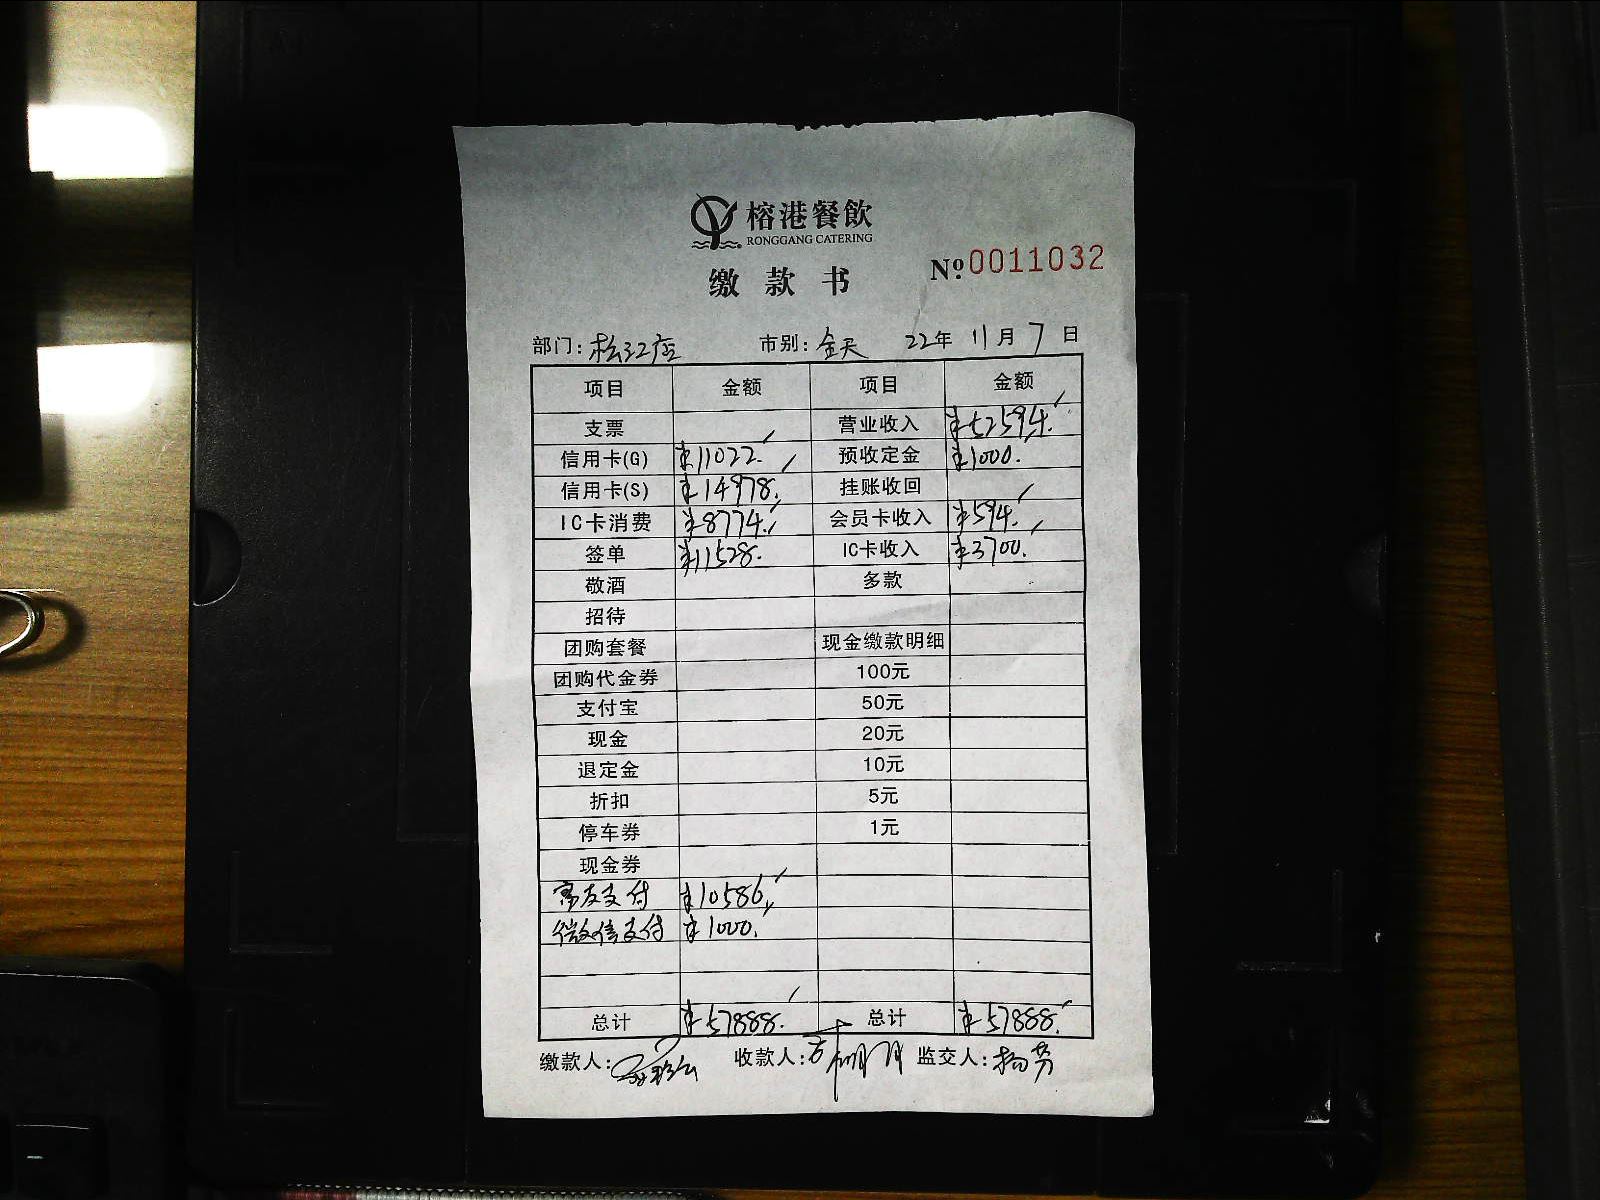 榕港餐飲
RONGGANG CATERING
缴款书
№ 0011032
部门: 松江店 市别: 全天 22年 11月 7日
项目 金额 项目 金额
支票 营业收入 ¥52594.
信用卡(G) ¥11022. 预收定金 ¥1000.
信用卡(S) ¥14978. 挂账收回
IC卡消费 ¥8774. 会员卡收入 ¥594.
签单 ¥11528. IC卡收入 ¥3700.
敬酒 多款
招待
团购套餐 现金缴款明细
团购代金券 100元
支付宝 50元
现金 20元
退定金 10元
折扣 5元
停车券 1元
现金券
富友支付 ¥10586.
微信支付 ¥1000.
总计 ¥57888. 总计 ¥57888.
缴款人: 收款人: 监交人: